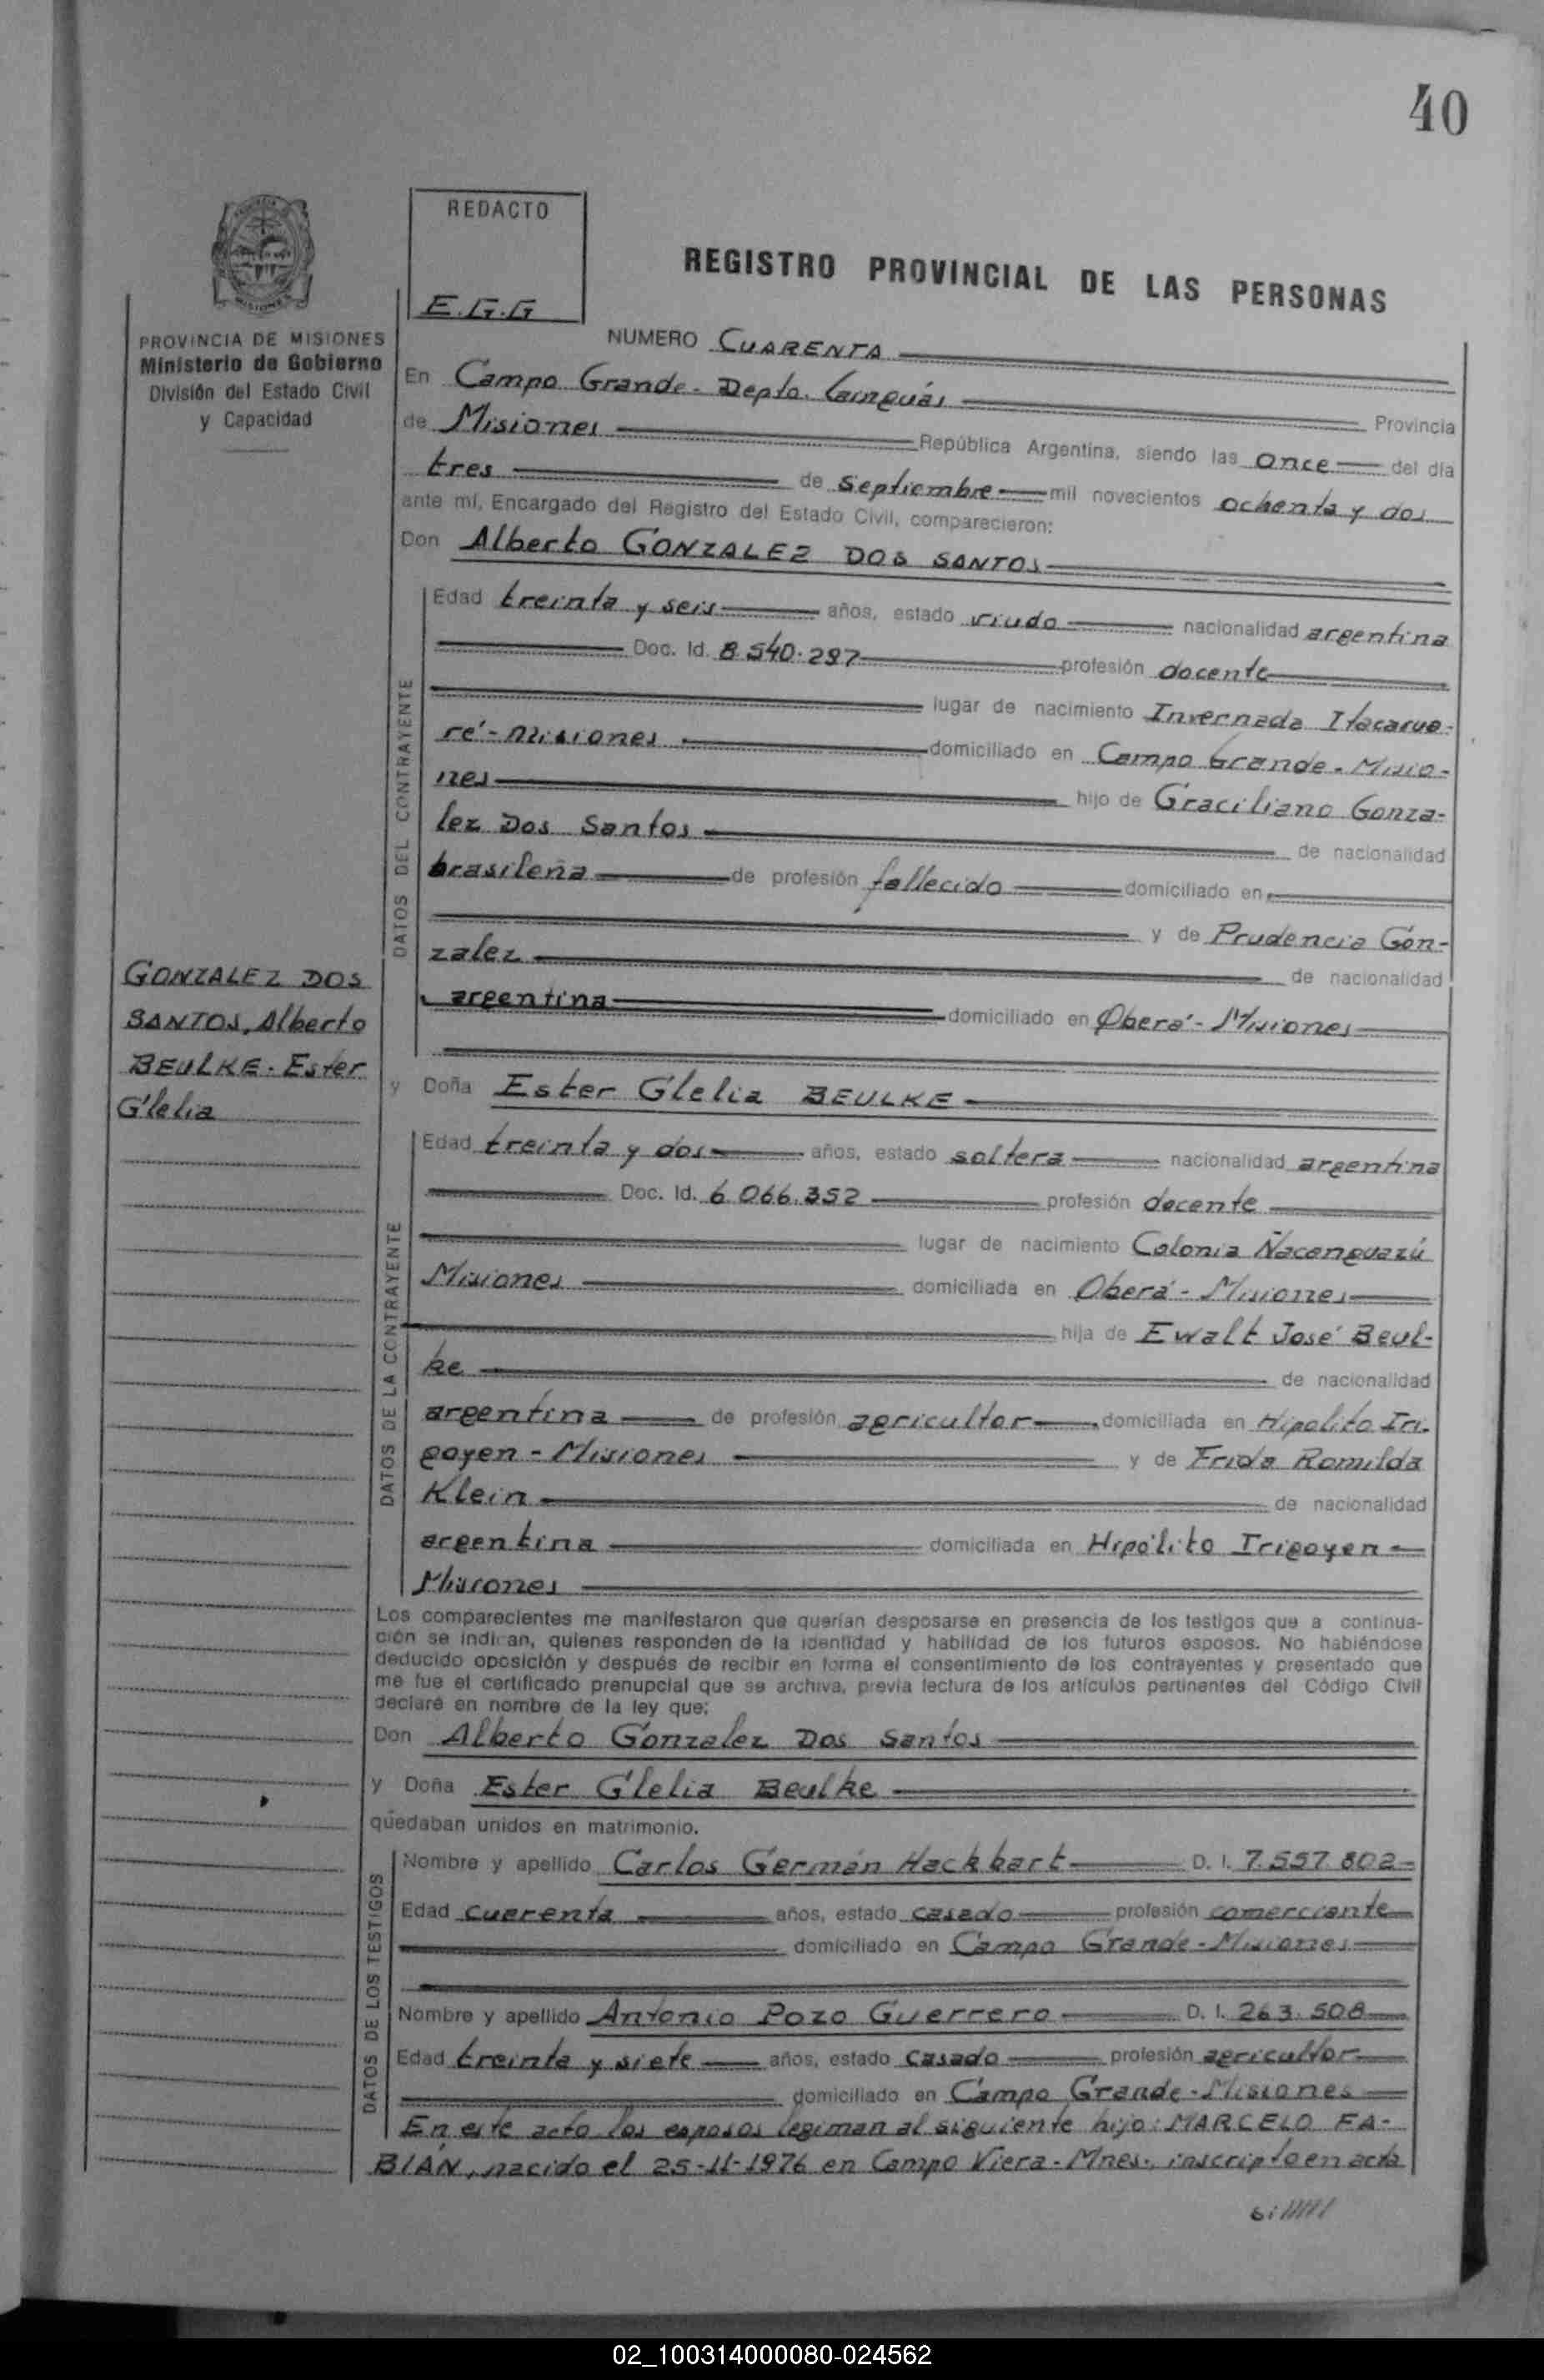 40
REDACTO
E.G.G
REGISTRO PROVINCIAL DE LAS PERSONAS
PROVINCIA DE MISIONES
Ministerio de Gobierno
División del Estado Civil
y Capacidad
NUMERO CUARENTA
En Campo Grande - Depto. Cainguás Provincia
de Misiones República Argentina, siendo las once del día
tres de septiembre mil novecientos ochenta y dos
ante mí, Encargado del Registro del Estado Civil, comparecieron:
Don Alberto GONZALEZ DOS SANTOS
DATOS DEL CONTRAYENTE
Edad treinta y seis años, estado viudo nacionalidad argentina
Doc. Id. 8.540.297 profesión docente
lugar de nacimiento Invernada Itacarua-
ré - Misiones domiciliado en Campo Grande - Misio-
nes hijo de Graciliano Gonza-
lez Dos Santos de nacionalidad
brasileña de profesión fallecido domiciliado en
y de Prudencia Gon-
zalez de nacionalidad
argentina domiciliado en Oberá - Misiones
GONZALEZ DOS
SANTOS, Alberto
BEULKE - Ester
Glelia
y Doña Ester Glelia BEULKE
DATOS DE LA CONTRAYENTE
Edad treinta y dos años, estado soltera nacionalidad argentina
Doc. Id. 6.066.352 profesión docente
lugar de nacimiento Colonia Ñacanguazú
Misiones domiciliada en Oberá - Misiones
hija de Ewalt José Beul-
ke de nacionalidad
argentina de profesión agricultor domiciliada en Hipolito Iri-
goyen - Misiones y de Frida Romilda
Klein de nacionalidad
argentina domiciliada en Hipólito Irigoyen -
Misiones
Los comparecientes me manifestaron que querían desposarse en presencia de los testigos que a continua-
ción se indican, quienes responden de la identidad y habilidad de los futuros esposos. No habiéndose
deducido oposición y después de recibir en forma el consentimiento de los contrayentes y presentado que
me fue el certificado prenupcial que se archiva, previa lectura de los artículos pertinentes del Código Civil
declaré en nombre de la ley que:
Don Alberto Gonzalez Dos Santos
y Doña Ester Glelia Beulke
quedaban unidos en matrimonio.
DATOS DE LOS TESTIGOS
Nombre y apellido Carlos Germán Hackbart D. I. 7.557.802-
Edad cuarenta años, estado casado profesión comerciante
domiciliado en Campo Grande - Misiones
Nombre y apellido Antonio Pozo Guerrero D. I. 263.508
Edad treinta y siete años, estado casado profesión agricultor
domiciliado en Campo Grande - Misiones
En este acto los esposos legiman al siguiente hijo: MARCELO FA-
BIÁN, nacido el 25-11-1976 en Campo Viera - Mnes., inscripto en acta
02_100314000080-024562